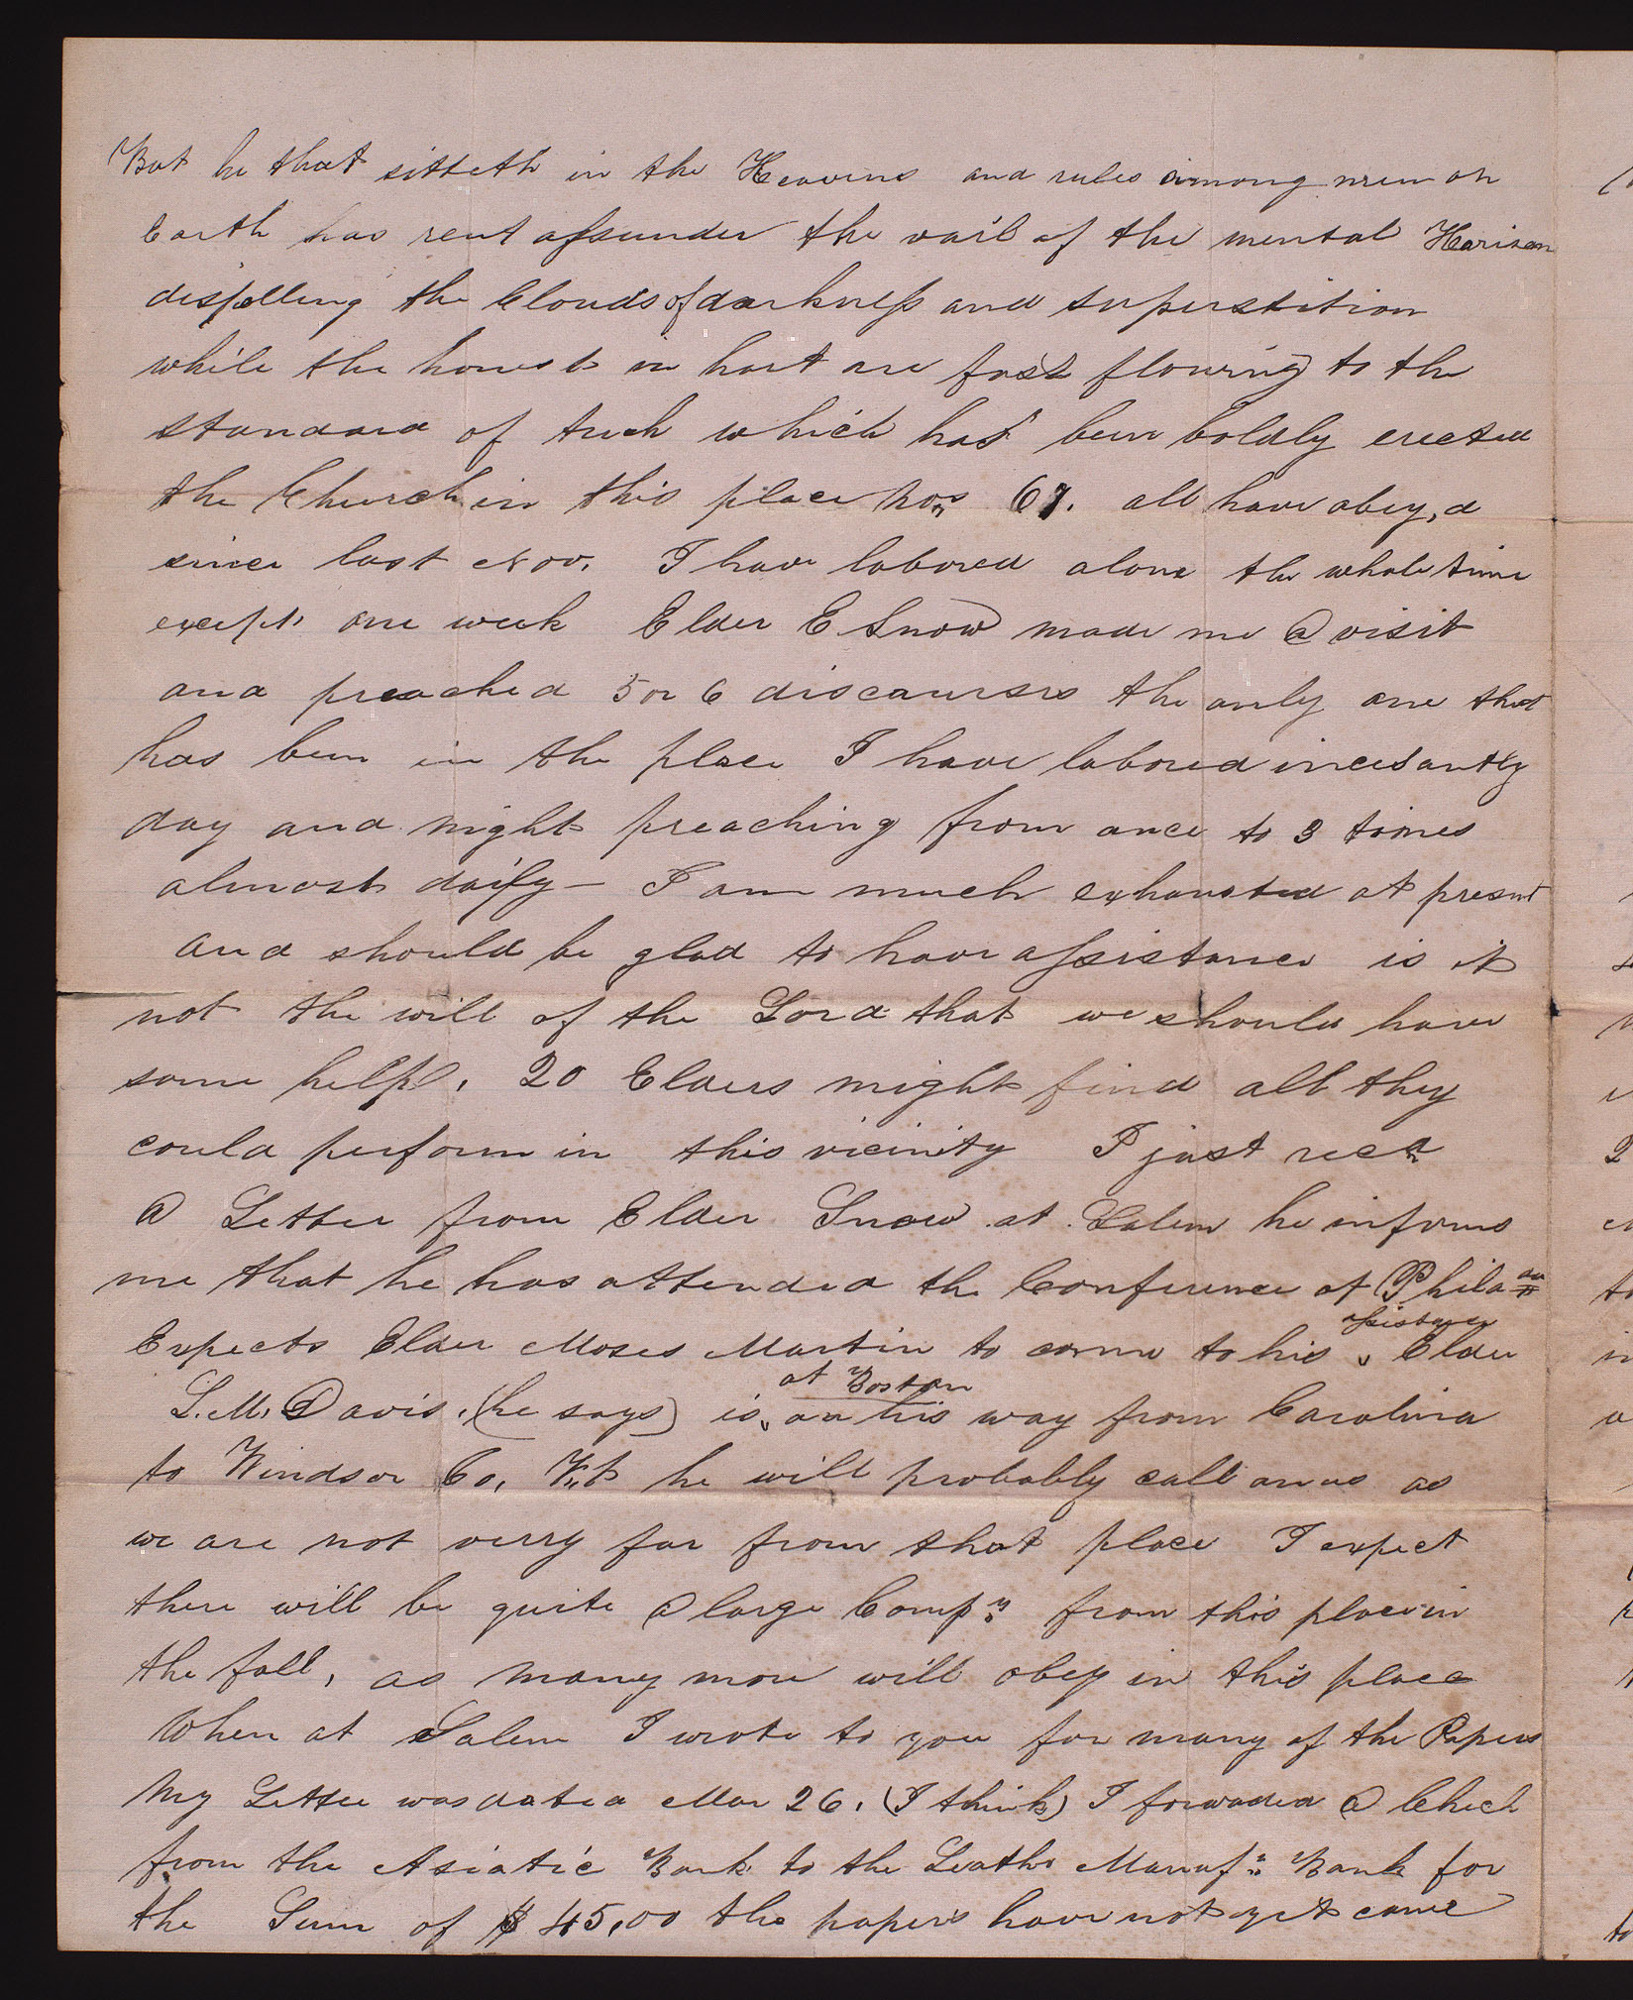 But he that sitteth in the Heavens and rules among men on
Earth has rent assunder the vail of the mental Horison
dispelling the Clouds of darkness and superstition
while the honest in hart are fast flowing to the
standard of truth which has been boldly erected
the Church in this place nos. 67. all have obey,d
since last Nov. I have labored alone the whole time
except one week Elder E Snow made me a visit
and preached 5 or 6 discourses the only one that
has been in the place I have labored incesantly
day and night preaching from once to 3 times
almost daily — I am much exhausted at present
and should be glad to have assistance is it
not the will of the Lord that we should have
some help. 20 Elders might find all they
could perform in this vicinity I just recd
a Letter from Elder Snow at Salem he informs
me that he has attended the Conference at Phila
Expects Elder Moses Martin to come to his assistance Elder
L. M. Davis. (he says) is at Boston on his way from Carolina
to Windsor Co, V,t he will probably call on us as
we are not verry far from that place I expect
there will be quite a large Compy from this place in
the fall, as many more will obey in this place
When at Salem I wrote to you for many of the Papers
My Letter was dated Mar 26. (I think) I forwaded a Check
from the Asiatic Bank to the Leathr Manuf. Bank for
the Sum of $45,00 the papers have not yet come